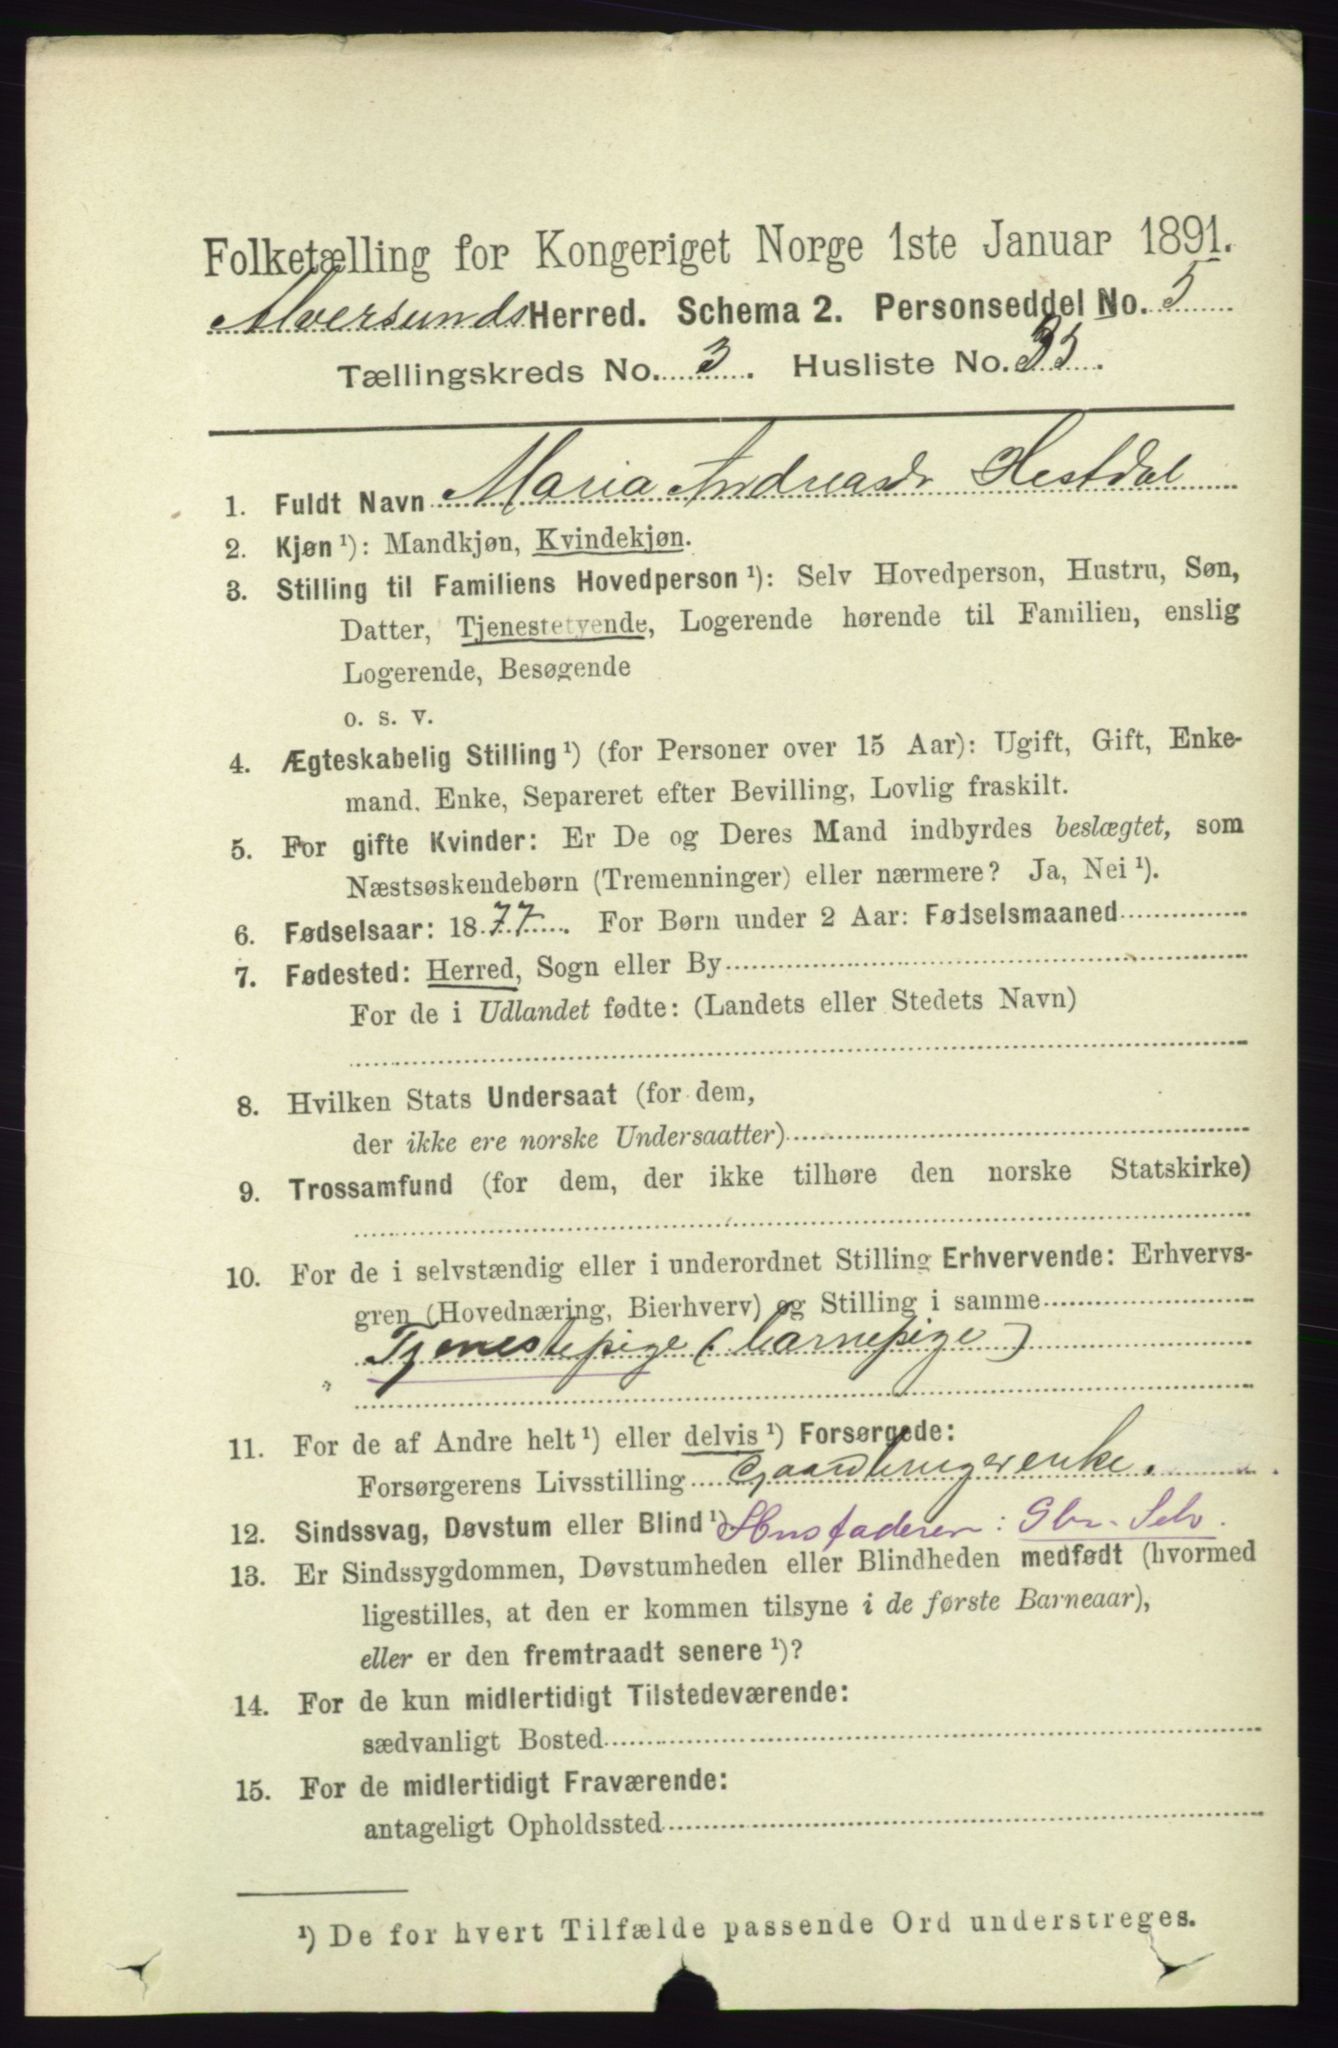 Folketælling for Kongeriget Norge 1ste Januar 1891.
Alversunds Herred. Schema 2. Personseddel No. 5
Tællingskreds No. 3. Husliste No. 35.
1. Fuldt Navn Maria Andreasdr Hestdal
2. Kjøn ¹): Mandkjøn, Kvindekjøn.
3. Stilling til Familiens Hovedperson ¹): Selv Hovedperson, Hustru, Søn,
Datter, Tjenestetyende, Logerende hørende til Familien, enslig
Logerende, Besøgende
o. s. v.
4. Ægteskabelig Stilling ¹) (for Personer over 15 Aar): Ugift, Gift, Enke-
mand, Enke, Separeret efter Bevilling, Lovlig fraskilt.
5. For gifte Kvinder: Er De og Deres Mand indbyrdes beslægtet, som
Næstsøskendebørn (Tremenninger) eller nærmere? Ja, Nei ¹).
6. Fødselsaar: 1877. For Børn under 2 Aar: Fødselsmaaned
7. Fødested: Herred, Sogn eller By
For de i Udlandet fødte: (Landets eller Stedets Navn)
8. Hvilken Stats Undersaat (for dem,
der ikke ere norske Undersaatter)
9. Trossamfund (for dem, der ikke tilhøre den norske Statskirke)
10. For de i selvstændig eller i underordnet Stilling Erhvervende: Erhvervs-
gren (Hovednæring, Bierhverv) og Stilling i samme
Tjenestepige (barnepige)
11. For de af Andre helt ¹) eller delvis ¹) Forsørgede:
Forsørgerens Livsstilling Gaardbrugerenke.
12. Sindssvag, Døvstum eller Blind ¹) Husfaderen: Gbr. Selv.
13. Er Sindssygdommen, Døvstumheden eller Blindheden medfødt (hvormed
ligestilles, at den er kommen tilsyne i de første Barneaar),
eller er den fremtraadt senere ¹)?
14. For de kun midlertidigt Tilstedeværende:
sædvanligt Bosted
15. For de midlertidigt Fraværende:
antageligt Opholdssted
¹) De for hvert Tilfælde passende Ord understreges.